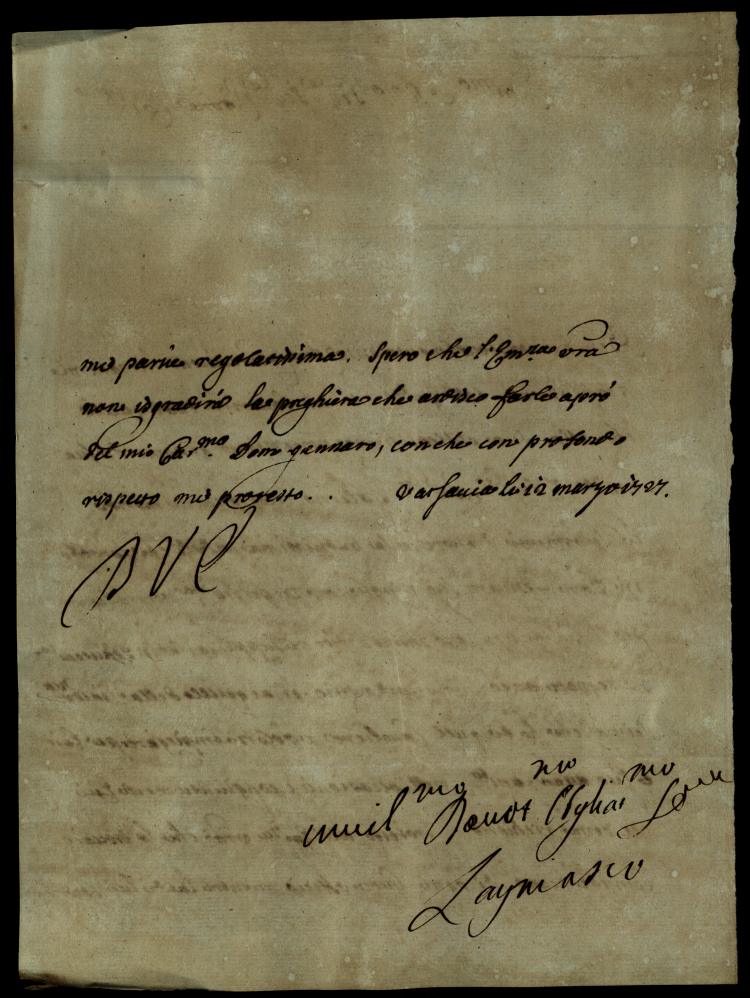 me parue regolatissima. Spero che l'Em.za vrã
non isgradirà la preghiera che ardisco farle a prò
del mio Car.mo Don gennaro, con che con profondo
rispetto me protesto. . Varsauia li 12 marzo 1727.
D V E
umil.mo Deuot.mo Obligat.mo Ser.
Lagniasco